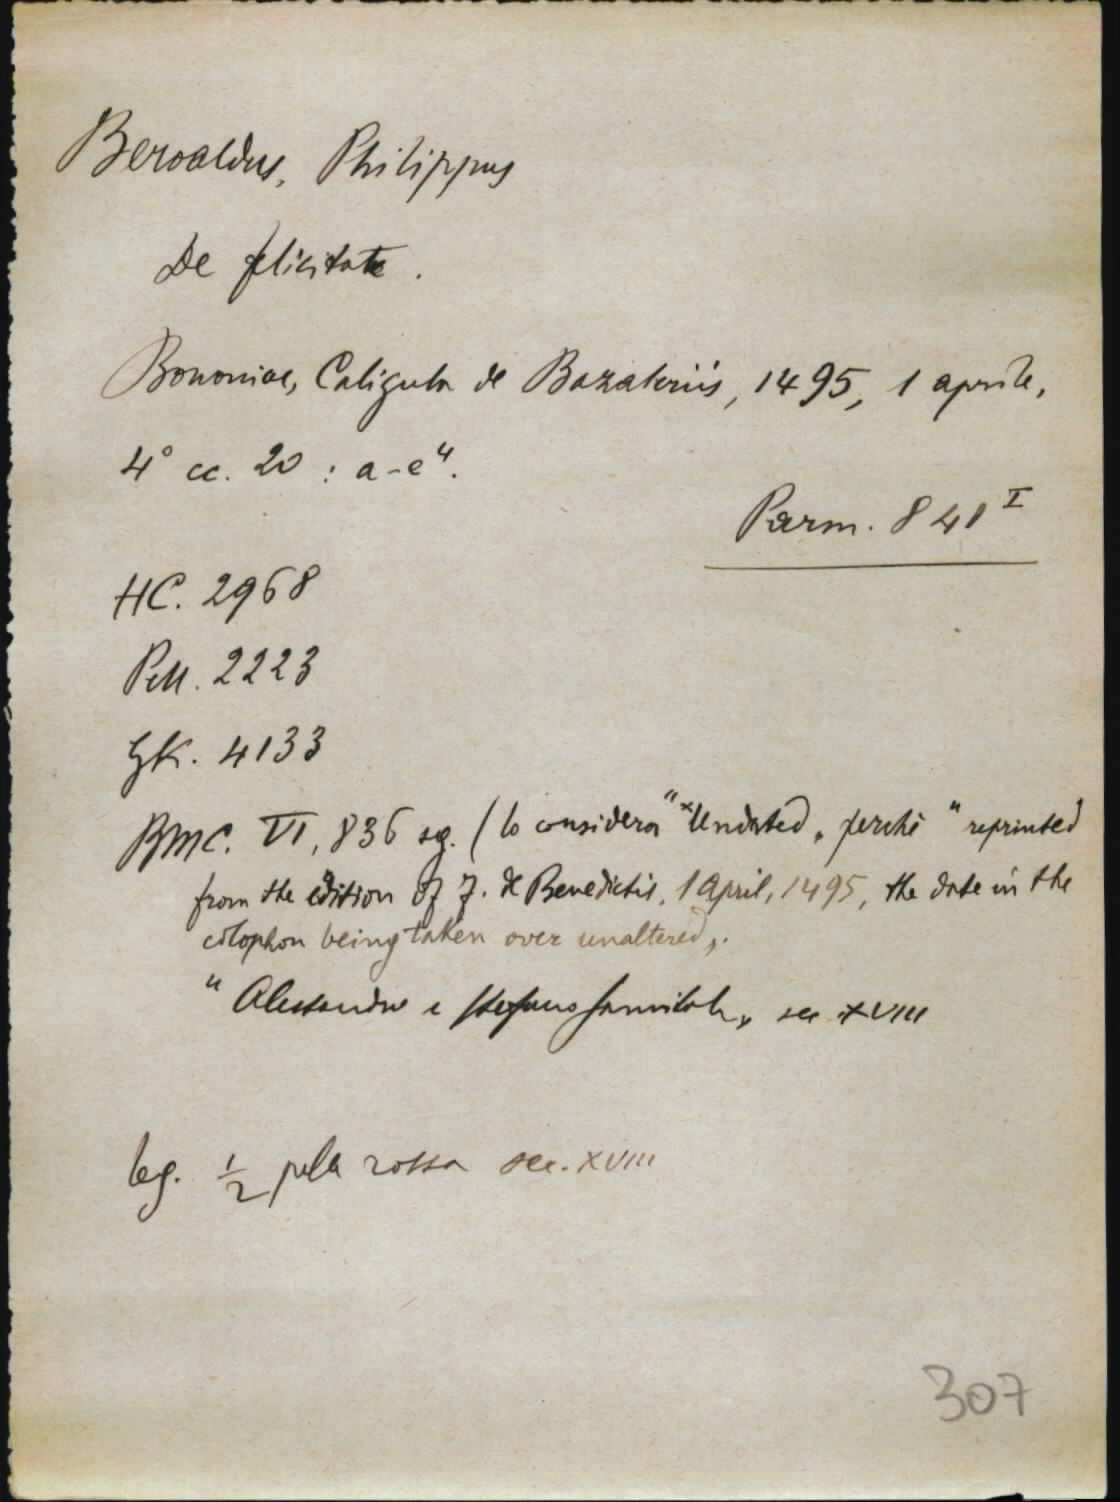 Beroaldus, Philippus
De felicitate.
Bononiae, Caligula de Bazaleriis, 1495, 1 aprile,
4° cc. 20 : a-e⁴.
Parm. 841 I
HC. 2968
Pell. 2223
GK. 4133
BMC. VI, 836 sg. (lo considera "Undated„ perchè "reprinted
from the edition of J. de Benedictis, 1 April, 1495, the date in the
colophon being taken over unaltered„.
"Alessandro e Stefano „ sec XVIII
leg. 1/2 pelle rossa sec. XVIII
307